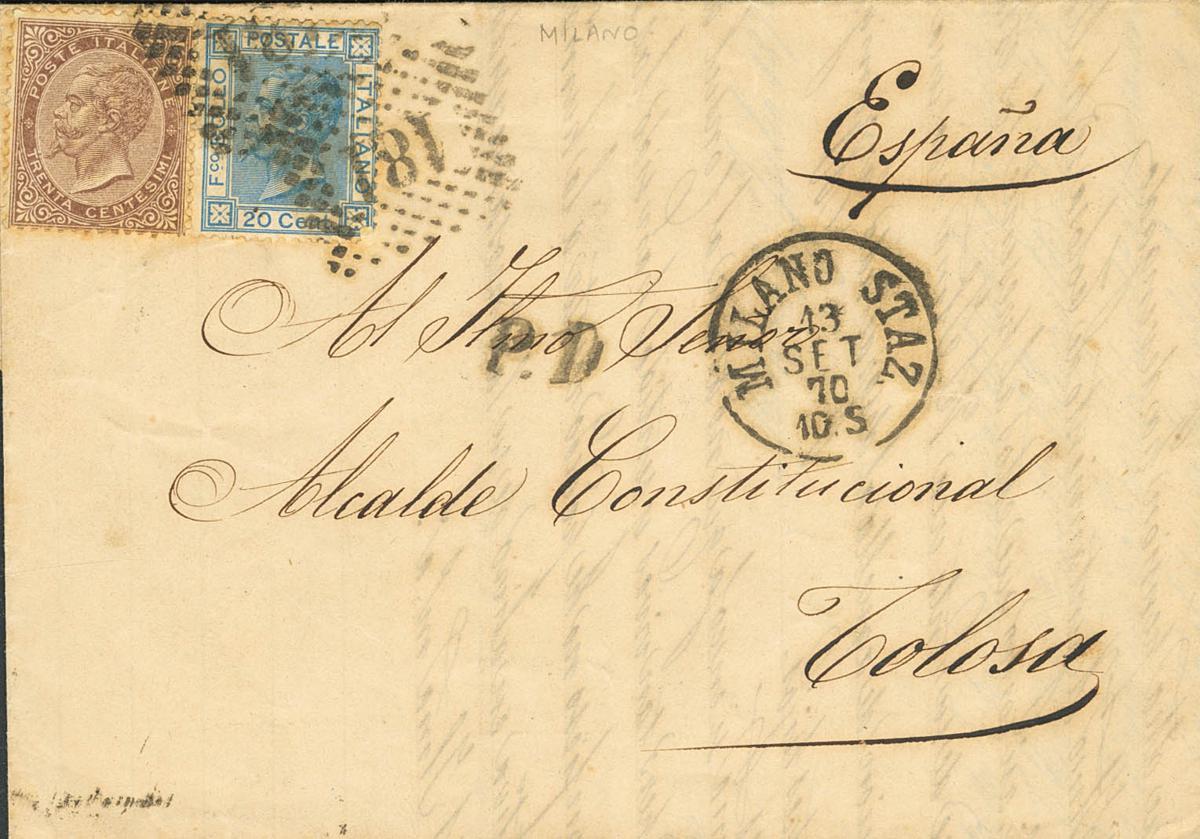 MILANO
POSTE ITALIANE
TRENTA CENTESIMI
POSTALE
ITALIANO
Fco BOLLO
20 Cent
181
España
MILANO STAZ.
13
SET
70
10.S
Al Ilmo Señor
P.D
Alcalde Constitucional
Tolosa